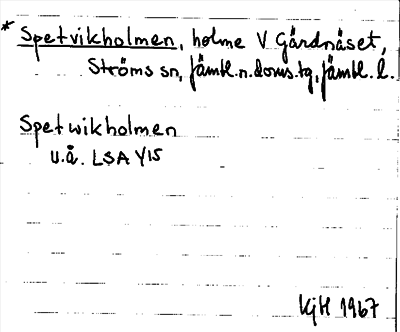 * Spetvikholmen, holme V Gårdnäset,
Ströms sn, Jämtl.n.doms.tg, Jämtl. l.
Spetwikholmen
u.å. LSA Y15
KjH 1967